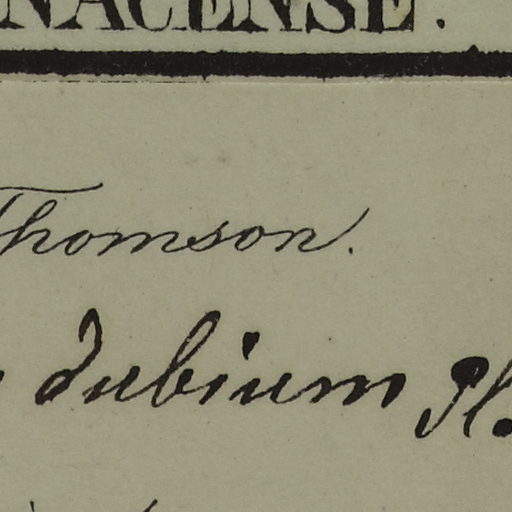 NACENSE.
Thomson.
dubium Pl.